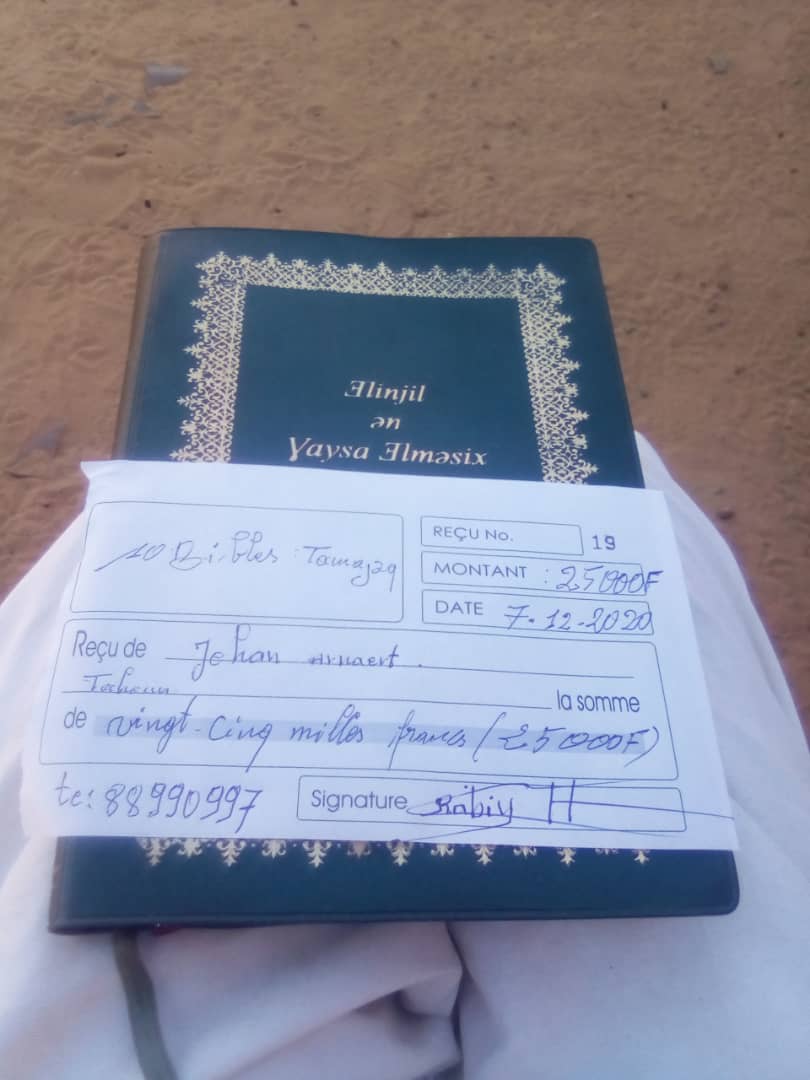 Ǝlinjil
ən
Ɣaysa Ǝlməsix
10 Bibles : Tamajaq
REÇU No. 19
MONTANT : 25000F
DATE 7-12-2020
Reçu de Jehan Arnaert.
la somme
de vingt-cinq milles francs (25000F)
te: 88990997
Signature Rabiy H